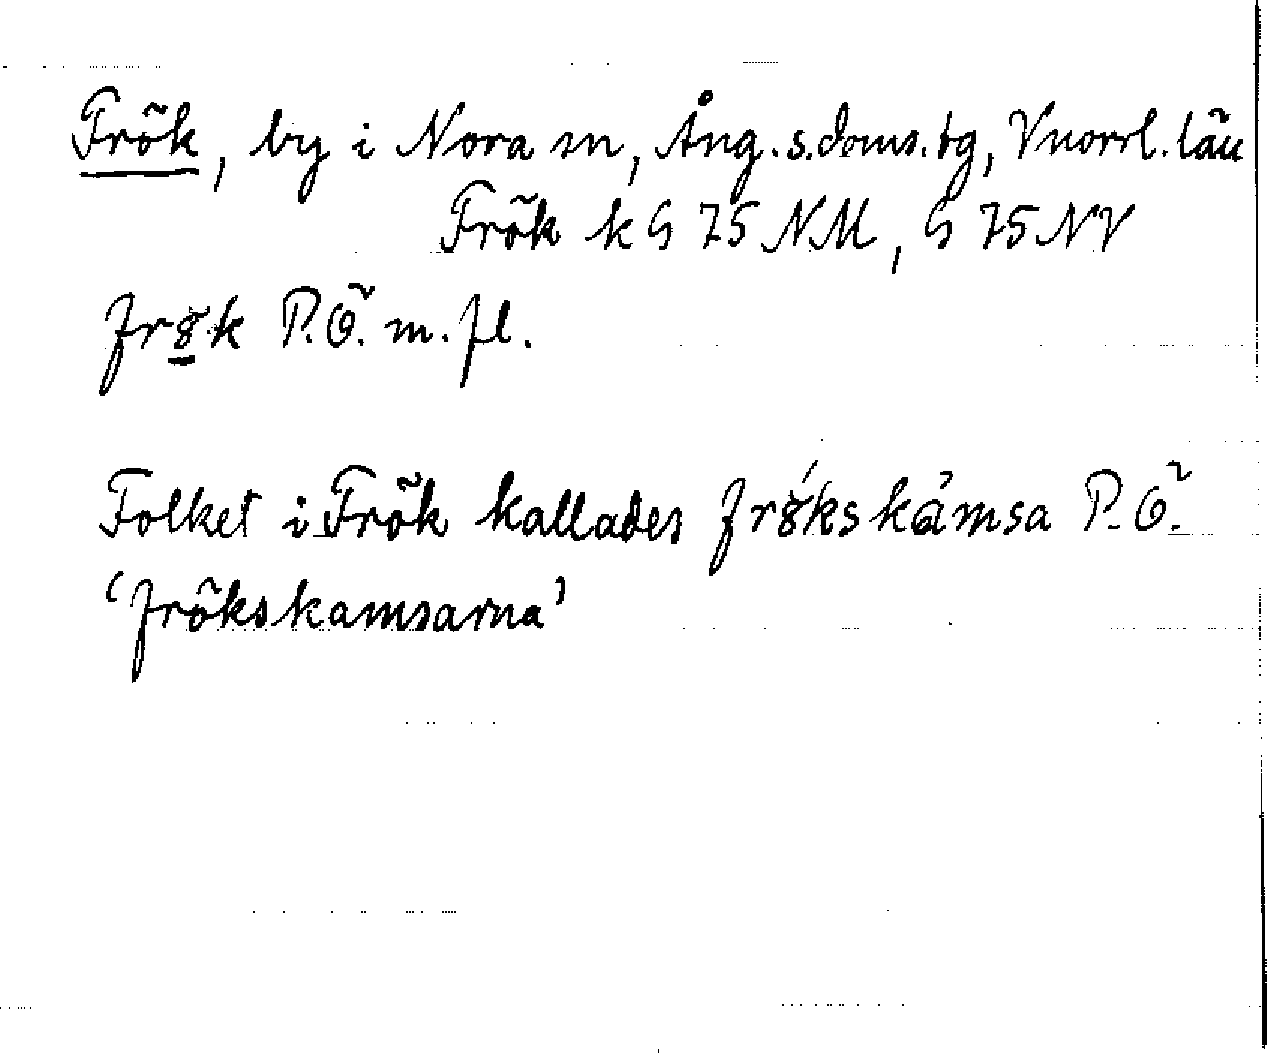 Frök, by i Nora sn, Ång.s.doms.tg, Vnorrl.län
Frök k G 75 NM, G 75 NV
frȣk P.Ö. m.fl.
Folket i Frök kallades frȣ́kskàmsa P.Ö.
'frökskamsarna'